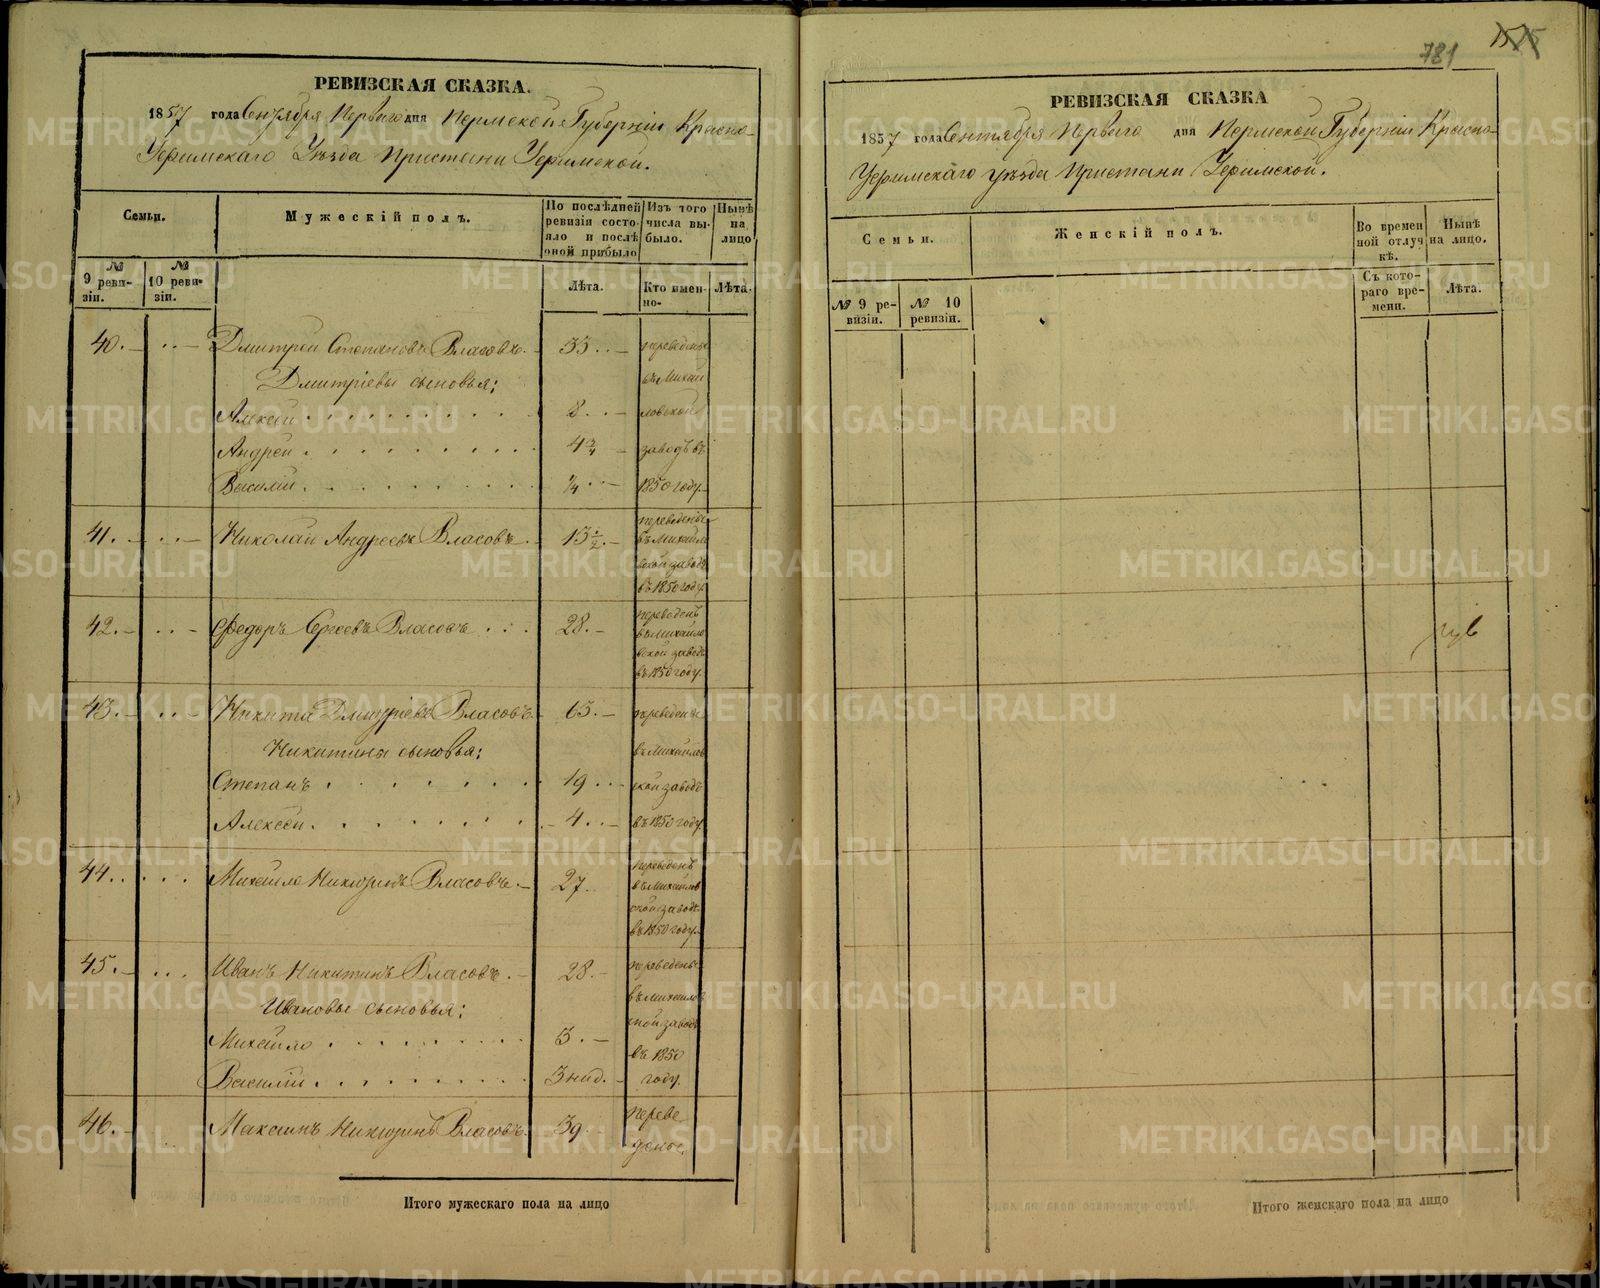 РЕВИЗСКАЯ СКАЗКА.
1857 года Сентября Первого дня Пермской Губерніи Красно-
Уфимскаго Уѣзда Пристани Уфимской.
Семьи.
Мужескій полъ.
По послѣдней ревизіи состояло и послѣ оной прибыло
Изъ того числа выбыло.
Нынѣ на лицо
№ 9 ревизіи.
№ 10 ревизіи.
Лѣта.
Кто именно.
Лѣта.
40. Дмитрей Степановъ Власовъ. 33 переведены
Дмитріевы сыновья: въ Михай
Алексѣй 8 ловской
Андрей 4 3/4 заводъ въ
Василій 1/4 1850 году
41. Николай Андреевъ Власовъ 13 1/2 переведенъ въ Михайловской заводъ въ 1850 году
42. Федоръ Сергеевъ Власовъ 28. переведенъ въ Михайловской заводъ въ 1850 году.
43. Никита Дмитріевъ Власовъ 63. переведены
Никитины сыновья: въ Михайлов
Степанъ 19 ской заводъ
Алексѣй 4 въ 1850 году
44. Михайло Никитинъ Власовъ 27. переведенъ въ Михайловской заводъ въ 1850 году.
45. Иванъ Никитинъ Власовъ 28. переведены
Ивановы сыновья: въ Михайлов
Михайло 3. ской заводъ
Василій 3 нид. въ 1850 году.
46. Максимъ Никитинъ Власовъ 39 переве
Итого мужескаго пола на лицо
781
1515
РЕВИЗСКАЯ СКАЗКА
1857 года Сентября Перваго дня Пермской Губерніи Красно-
Уфимскаго уѣзда Пристани Уфимской.
Семьи.
Женскій полъ.
Во временной отлучкѣ.
Нынѣ на лицо.
№ 9 ревизіи.
№ 10 ревизіи.
Съ котораго времени.
Лѣта.
Итого женскаго пола на лицо
METRIKI.GASO-URAL.RU